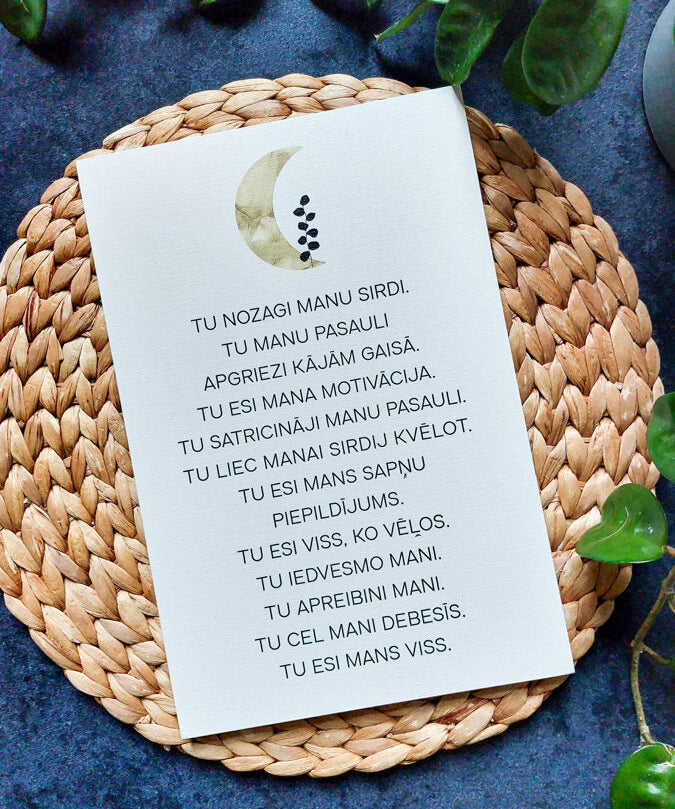 TU NOZAGI MANU SIRDI.
TU MANU PASAULI
APGRIEZI KĀJĀM GAISĀ.
TU ESI MANA MOTIVĀCIJA.
TU SATRICINĀJI MANU PASAULI.
TU LIEC MANAI SIRDIJ KVĒLOT.
TU ESI MANS SAPŅU
PIEPILDĪJUMS.
TU ESI VISS, KO VĒĻOS.
TU IEDVESMO MANI.
TU APREIBINI MANI.
TU CEL MANI DEBESĪS.
TU ESI MANS VISS.